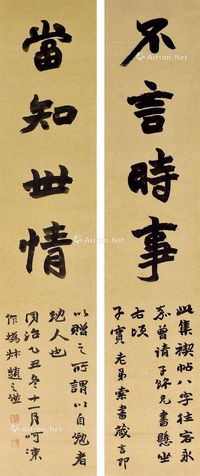 不言時事
當知世情
此集禊帖八字往客永
嘉曾請子𥠖兄書懸坐
右頃
子賓老弟索書箴言即
以贈之所謂以自勉者
勉人也
同治乙丑冬十一月呵凍
作 撝叔趙之謙